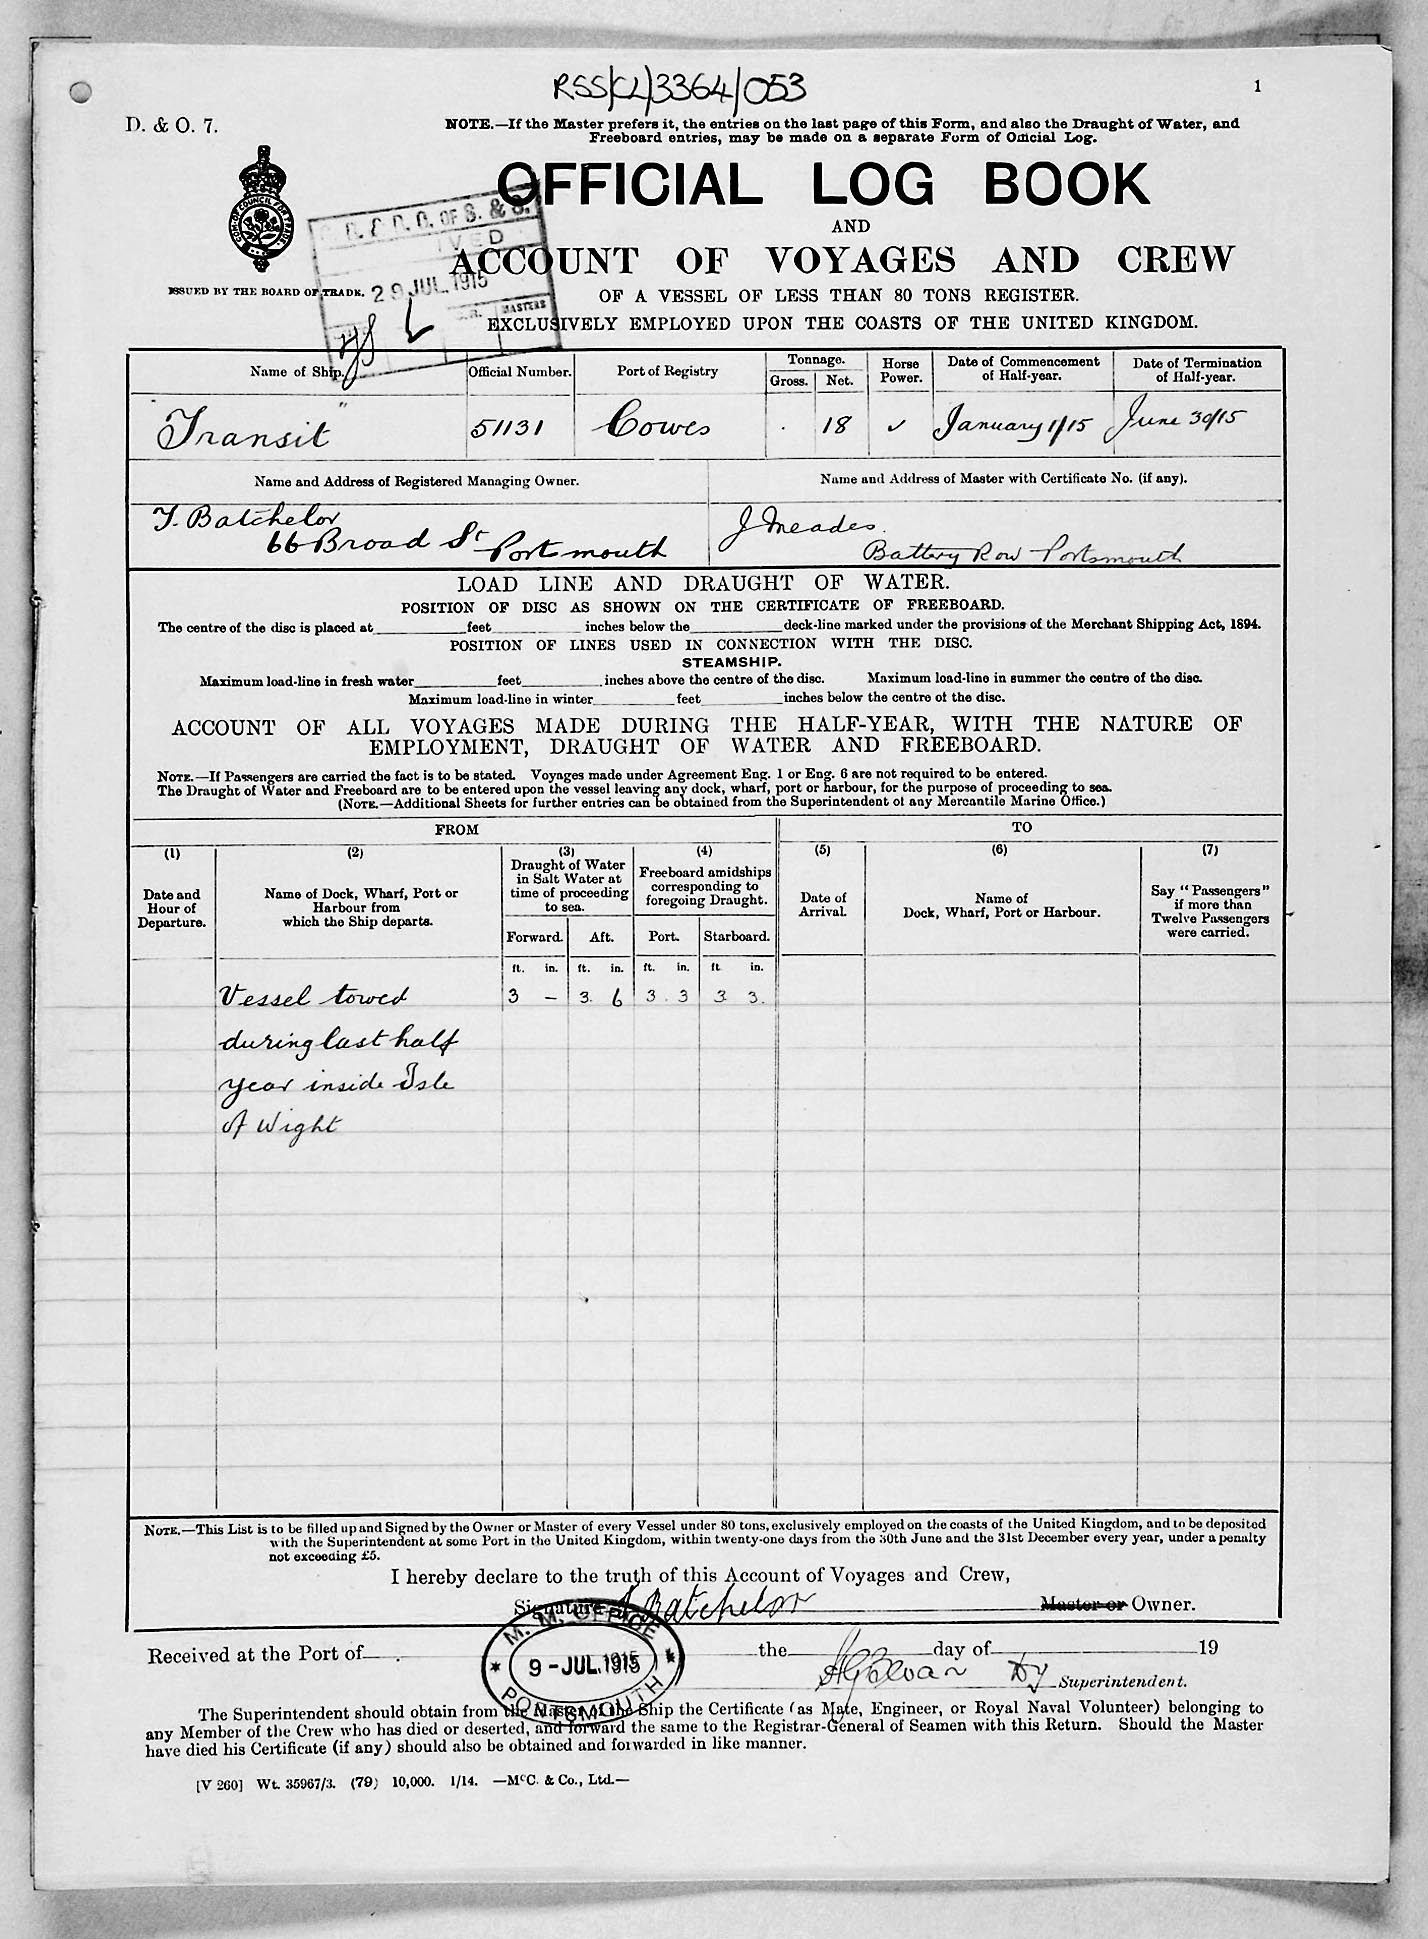 RSS/CL/3364/053
1
D. & O. 7.
NOTE.—If the Master prefers it, the entries on the last page of this Form, and also the Draught of Water, and
Freeboard entries, may be made on a separate Form of Official Log.
COM: OF COUNCIL FOR TRADE
OFFICIAL LOG BOOK
AND
ACCOUNT OF VOYAGES AND CREW
ISSUED BY THE BOARD OF TRADE.
OF S. & S.
29 JUL. 1915
MASTERS
OF A VESSEL OF LESS THAN 80 TONS REGISTER.
EXCLUSIVELY EMPLOYED UPON THE COASTS OF THE UNITED KINGDOM.
Name of Ship. Official Number. Port of Registry Tonnage. Gross. Net. Horse Power. Date of Commencement of Half-year. Date of Termination of Half-year.
"Transit" 51131 Cowes . 18 ✓ January 1/15 June 30/15
Name and Address of Registered Managing Owner. Name and Address of Master with Certificate No. (if any).
T. Batchelor J Meades.
66 Broad St Portsmouth Battery Row Portsmouth
LOAD LINE AND DRAUGHT OF WATER.
POSITION OF DISC AS SHOWN ON THE CERTIFICATE OF FREEBOARD.
The centre of the disc is placed at feet inches below the deck-line marked under the provisions of the Merchant Shipping Act, 1894.
POSITION OF LINES USED IN CONNECTION WITH THE DISC.
STEAMSHIP.
Maximum load-line in fresh water feet inches above the centre of the disc. Maximum load-line in summer the centre of the disc.
Maximum load-line in winter feet inches below the centre of the disc.
ACCOUNT OF ALL VOYAGES MADE DURING THE HALF-YEAR, WITH THE NATURE OF
EMPLOYMENT, DRAUGHT OF WATER AND FREEBOARD.
NOTE.—If Passengers are carried the fact is to be stated. Voyages made under Agreement Eng. 1 or Eng. 6 are not required to be entered.
The Draught of Water and Freeboard are to be entered upon the vessel leaving any dock, wharf, port or harbour, for the purpose of proceeding to sea.
(NOTE.—Additional Sheets for further entries can be obtained from the Superintendent of any Mercantile Marine Office.)
FROM TO
(1) (2) (3) (4) (5) (6) (7)
Date and Hour of Departure.
Name of Dock, Wharf, Port or Harbour from which the Ship departs.
Draught of Water in Salt Water at time of proceeding to sea.
Freeboard amidships corresponding to foregoing Draught.
Date of Arrival.
Name of Dock, Wharf, Port or Harbour.
Say "Passengers" if more than Twelve Passengers were carried.
Forward. Aft. Port. Starboard.
ft. in. ft. in. ft. in. ft. in.
Vessel towed 3 – 3. 6 3. 3 3 3.
during last half
year inside Isle
of Wight
NOTE.—This List is to be filled up and Signed by the Owner or Master of every Vessel under 80 tons, exclusively employed on the coasts of the United Kingdom, and to be deposited
with the Superintendent at some Port in the United Kingdom, within twenty-one days from the 30th June and the 31st December every year, under a penalty
not exceeding £5.
I hereby declare to the truth of this Account of Voyages and Crew,
Signature Batchelor Master or Owner.
M. M. OFFICE
9 - JUL. 1915
PORTSMOUTH
Received at the Port of the day of 19
Dy Superintendent.
The Superintendent should obtain from the Master of the Ship the Certificate (as Mate, Engineer, or Royal Naval Volunteer) belonging to
any Member of the Crew who has died or deserted, and forward the same to the Registrar-General of Seamen with this Return. Should the Master
have died his Certificate (if any) should also be obtained and forwarded in like manner.
[V 260] Wt. 35967/3. (79) 10,000. 1/14. —McC. & Co., Ltd.—